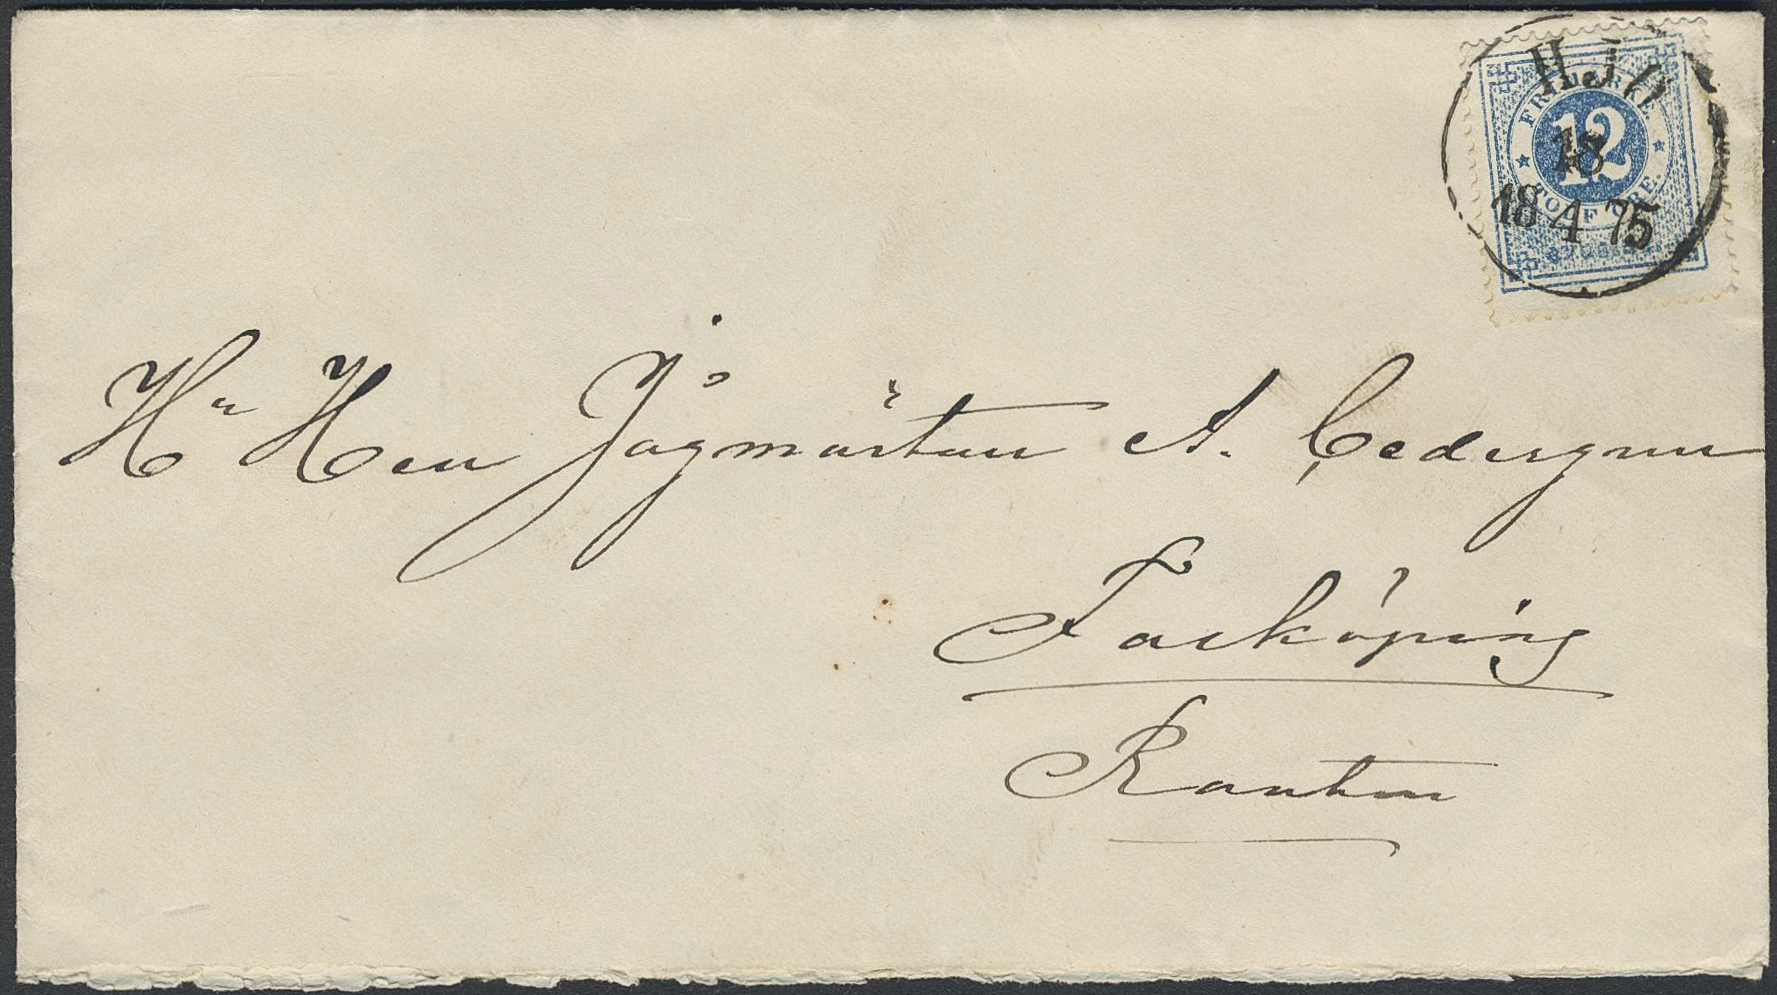 HJO
18
18 4 75
FRIMÄRKE
12
TOLF ÖRE.
SVERIGE
Hr Herr Jägmästare A. Cedergren
Faiköping
Ranten